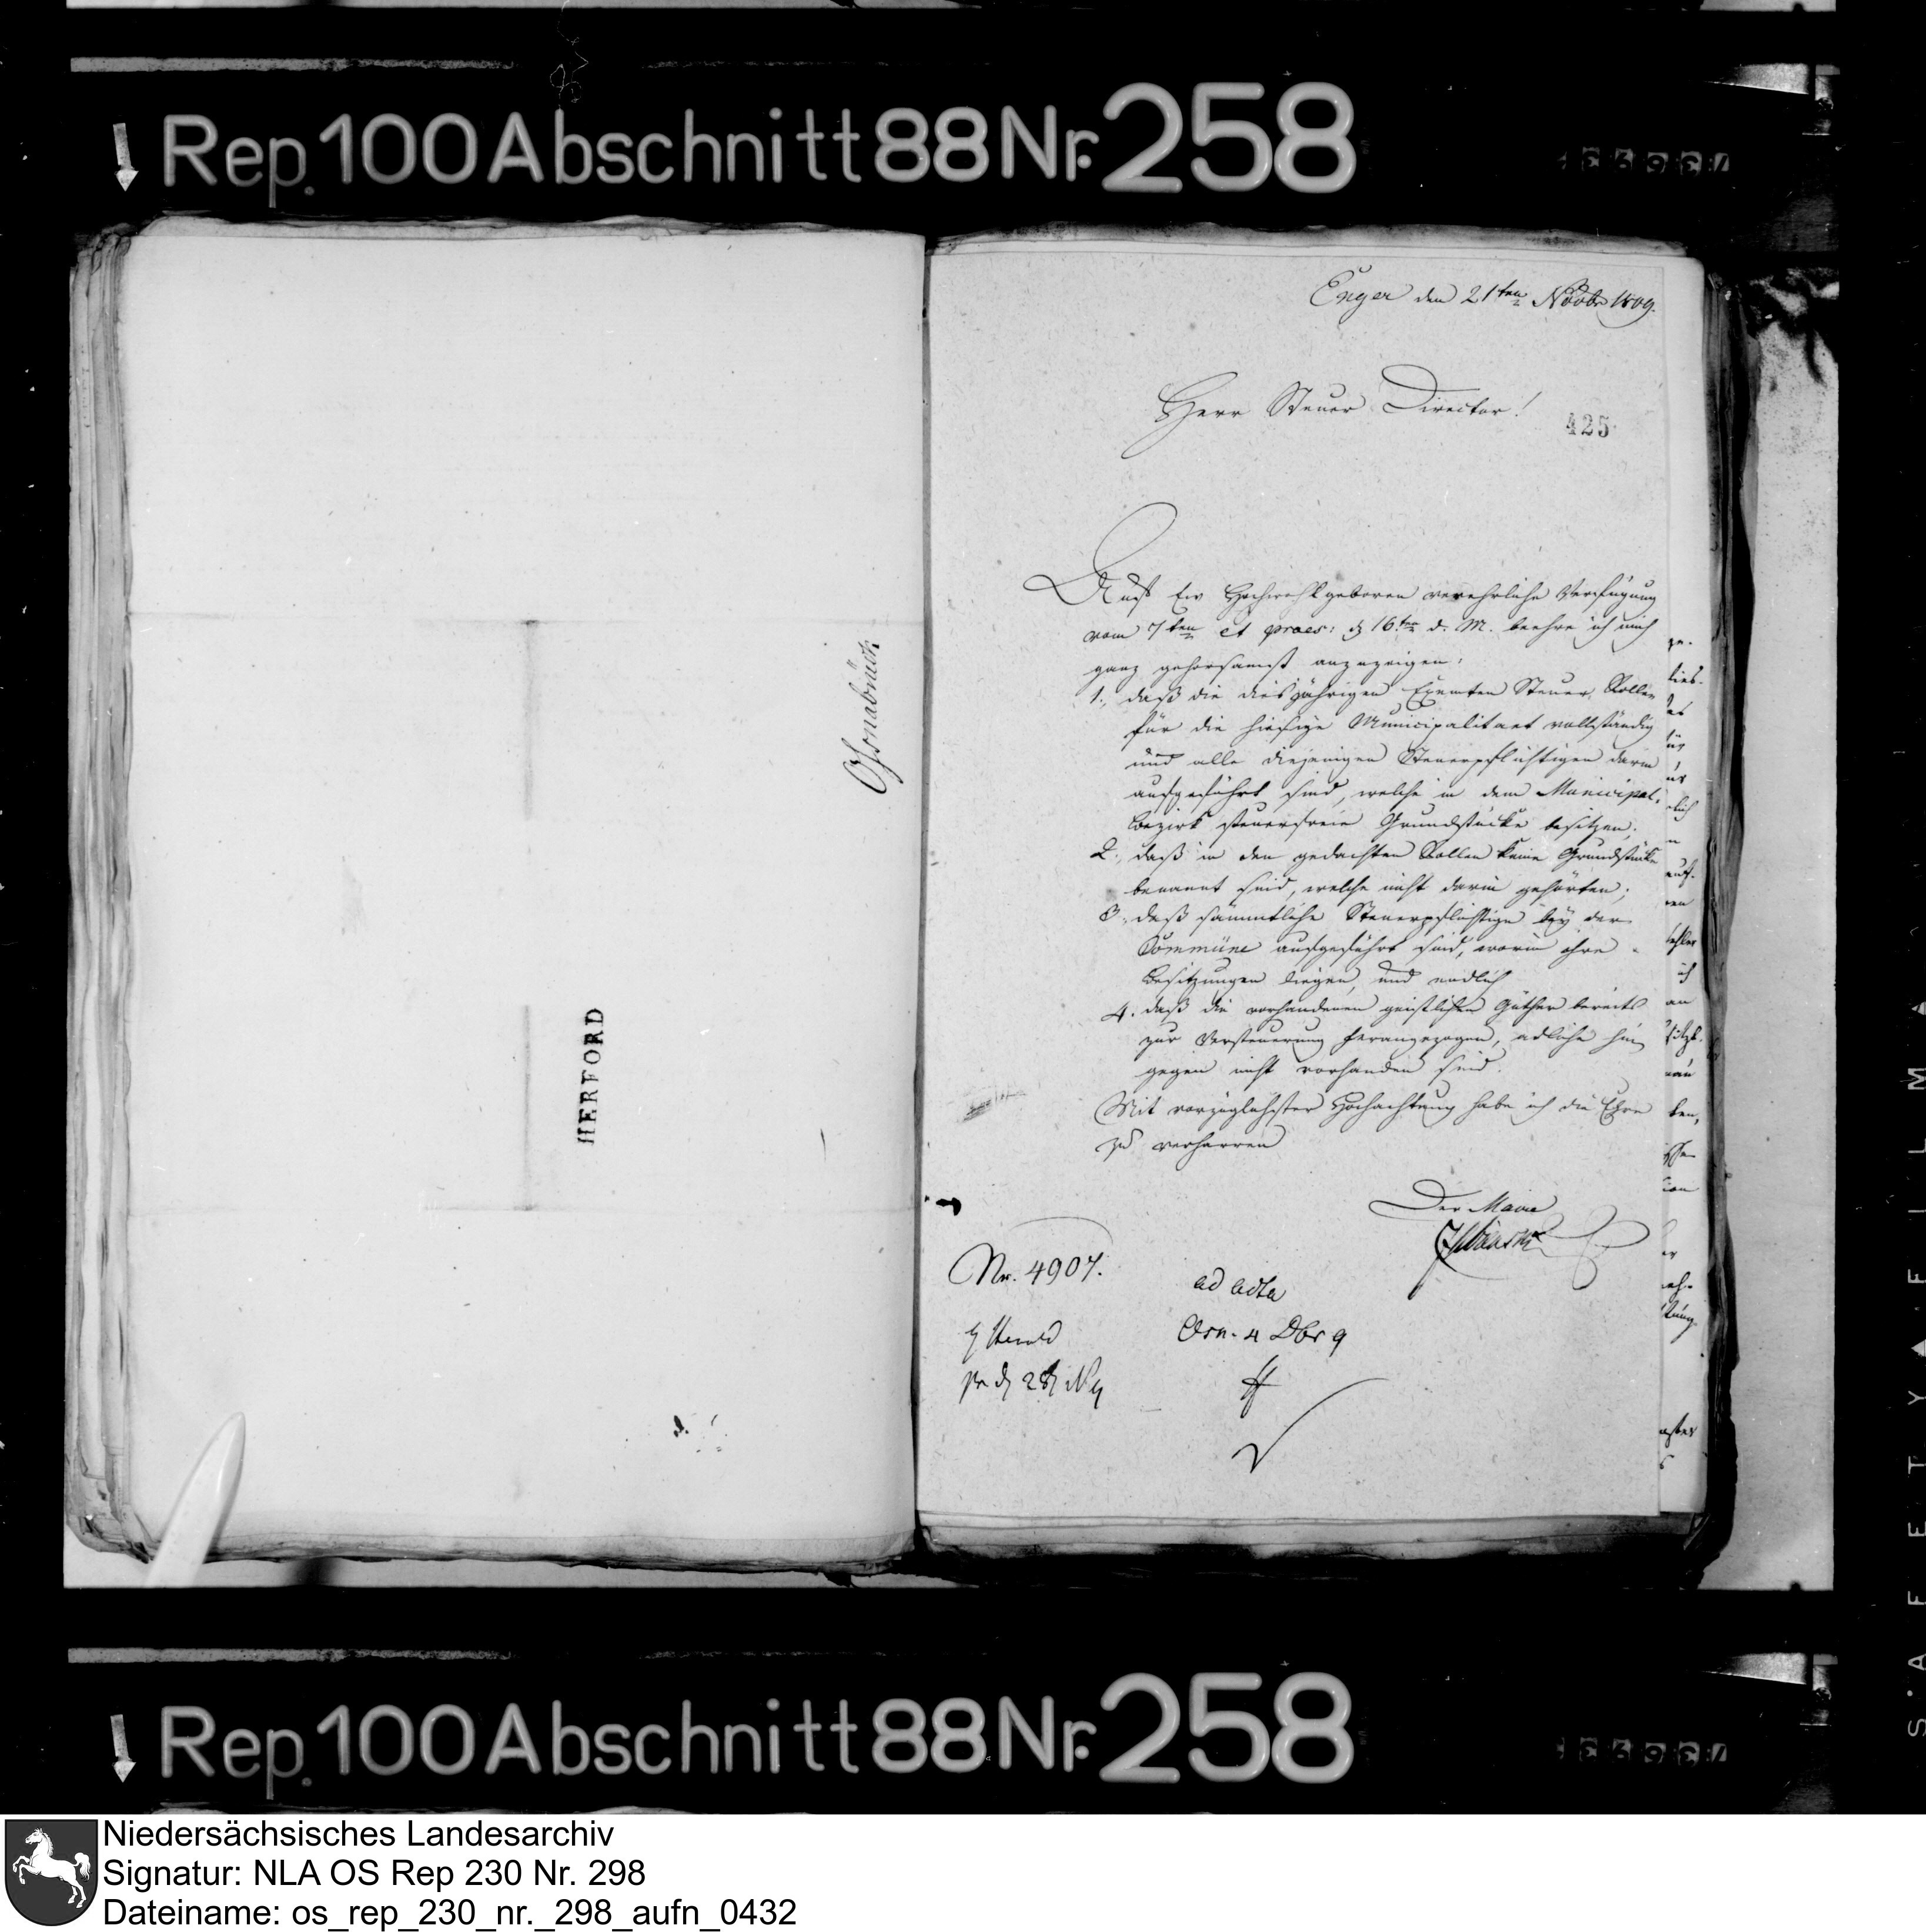 Rep. 100 Abschnitt 88 Nr. 258
Osnabrück
HERFORD
Enger den 21ten Novbr 1809.
Herr Steuer Director!
425
Auf Ew Hochwohlgeboren verehrliche Verfügung
vom 7ten et praes: d 16ten d. M. beehre ich mich
ganz gehorsamst anzuzeigen:
1., daß die diesjährigen Exemten Steuer Rollen
für die hiesige Municipalitaet vollständig
und alle diejenigen Steuerpflichtigen darin
aufgeführt sind, welche in dem Municipal-
bezirk steuerfreie Grundstücke besitzen;
2., daß in den gedachten Rollen keine Grundstücke
benannt sind, welche nicht darin gehörten;
3., daß sämmtliche Steuerpflichtige bey der
Commüne aufgeführt sind, worin ihre
Besitzungen liegen, und endlich
4. daß die vorhandenen geistlichen Güther bereits
zur Versteuerung herangezogen, adliche hin
gegen nicht vorhanden sind.
Mit vorzüglichster Hochachtung habe ich die Ehre
zu verharren
Der Maire
Nr. 4907.
ad acta
Osn. 4 Dbr 9
Rep. 100 Abschnitt 88 Nr. 258
SAFETY FILM
Niedersächsisches Landesarchiv
Signatur: NLA OS Rep 230 Nr. 298
Dateiname: os_rep_230_nr._298_aufn_0432